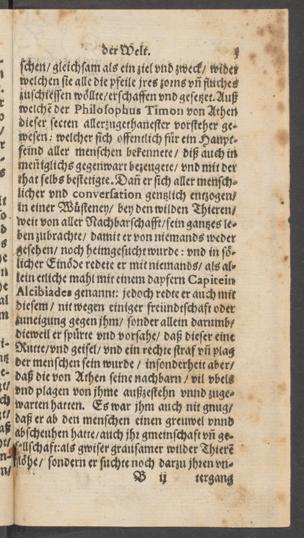 der Welt. 3
schen/ gleichsam als ein ziel vnd zweck/ wider
welchen sie alle die pfeile jres zorns vñ fluches
zuschiessen wöllte/ erschaffen vnd gesetzet. Auß
welchē der Philosophus Timon von Athen
dieser secten allerzugethanester vorsteher ge-
wesen: welcher sich offentlich für ein Haupt-
feind aller menschen bekennete/ diß auch in
meñiglichs gegenwart bezeugete/ vnd mit der
that selbs bestetigte. Dañ er sich aller mensch-
licher vnd conversation gentzlich entzogen/
in einer Wüsteney/ bey den wilden Thieren/
weit von aller Nachbarschafft/ sein gantzes le-
ben zubrachte/ damit er von niemands weder
gesehen/ noch heimgesucht wurde: vnd in sö-
licher Einöde redete er mit niemands/ als al-
lein etliche mahl mit einem dapfern Capitein
Alcibiades genannt: jedoch redte er auch mit
diesem/ nit wegen einiger freündtschaft oder
zuneigung gegen jhm/ sonder allein darumb/
dieweil er spürte vnd vorsahe/ daß dieser eine
Rutte/ vnd geisel/ vnd ein rechte straf vñ plag
der menschen sein wurde/ insonderheit aber/
daß die von Athen seine nachbarn/ vil vbels
vnd plagen von jhme außzestehn vnnd zuge-
warten hatten. Es war jhm auch nit gnug/
daß er ab den menschen einen greuwel vnnd
abscheuhen hatte/ auch jhr gmeinschaft vñ ge-
sellschaft: als gwiser grausamer wilder Thierē
flöhe/ sondern er suchte noch darzu jhren vn-
B ij tergang